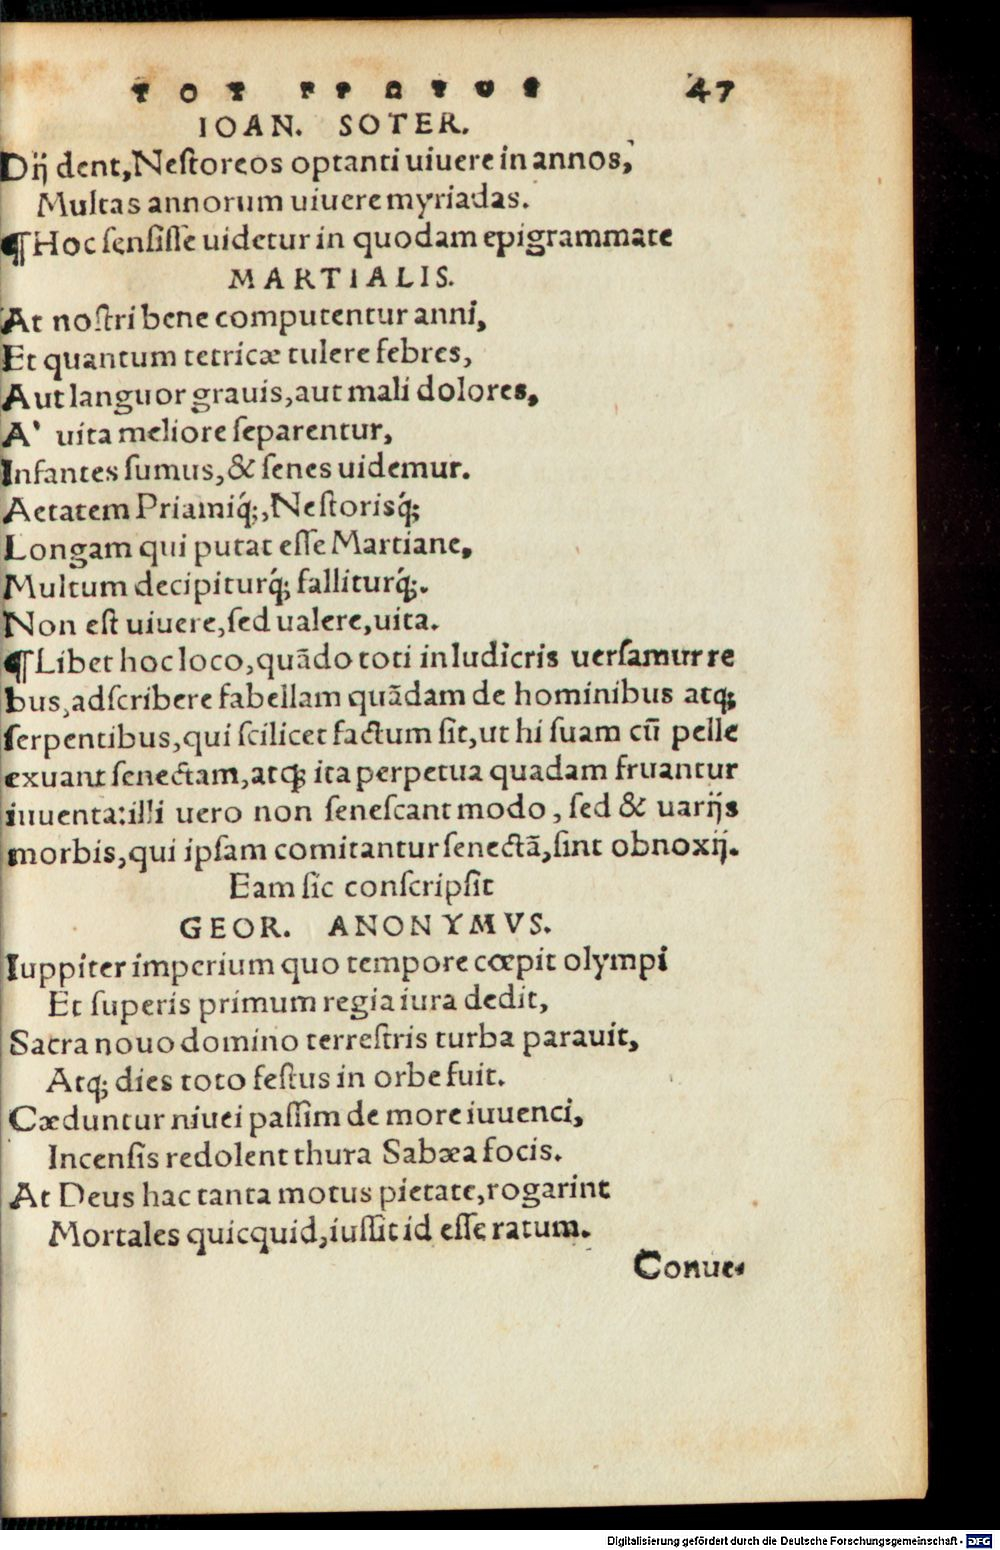 ΤΟΥ ΓΡΩΤΟΥ 47
IOAN. SOTER.
Dij dent, Nestoreos optanti uiuere in annos,
Multas annorum uiuere myriadas.
¶ Hoc sensisse uidetur in quodam epigrammate
MARTIALIS.
At nostri bene computentur anni,
Et quantum tetricæ tulere febres,
Aut languor grauis, aut mali dolores,
A' uita meliore separentur,
Infantes sumus, & senes uidemur.
Aetatem Priamiq́;, Nestorisq́;
Longam qui putat esse Martiane,
Multum decipiturq́; falliturq́;.
Non est uiuere, sed ualere, uita.
¶ Libet hoc loco, quãdo toti in ludicris uersamur re
bus, adscribere fabellam quãdam de hominibus atq;
serpentibus, qui scilicet factum sit, ut hi suam cũ pelle
exuant senectam, atq; ita perpetua quadam fruantur
iuuenta: illi uero non senescant modo, sed & uarijs
morbis, qui ipsam comitantur senectã, sint obnoxij.
Eam sic conscripsit
GEOR. ANONYMVS.
Iuppiter imperium quo tempore cœpit olympi
Et superis primum regia iura dedit,
Sacra nouo domino terrestris turba parauit,
Atq; dies toto festus in orbe fuit.
Cæduntur niuei passim de more iuuenci,
Incensis redolent thura Sabæa focis.
At Deus hac tanta motus pietate, rogarint
Mortales quicquid, iussit id esse ratum.
Conue-
Digitalisierung gefördert durch die Deutsche Forschungsgemeinschaft - DFG